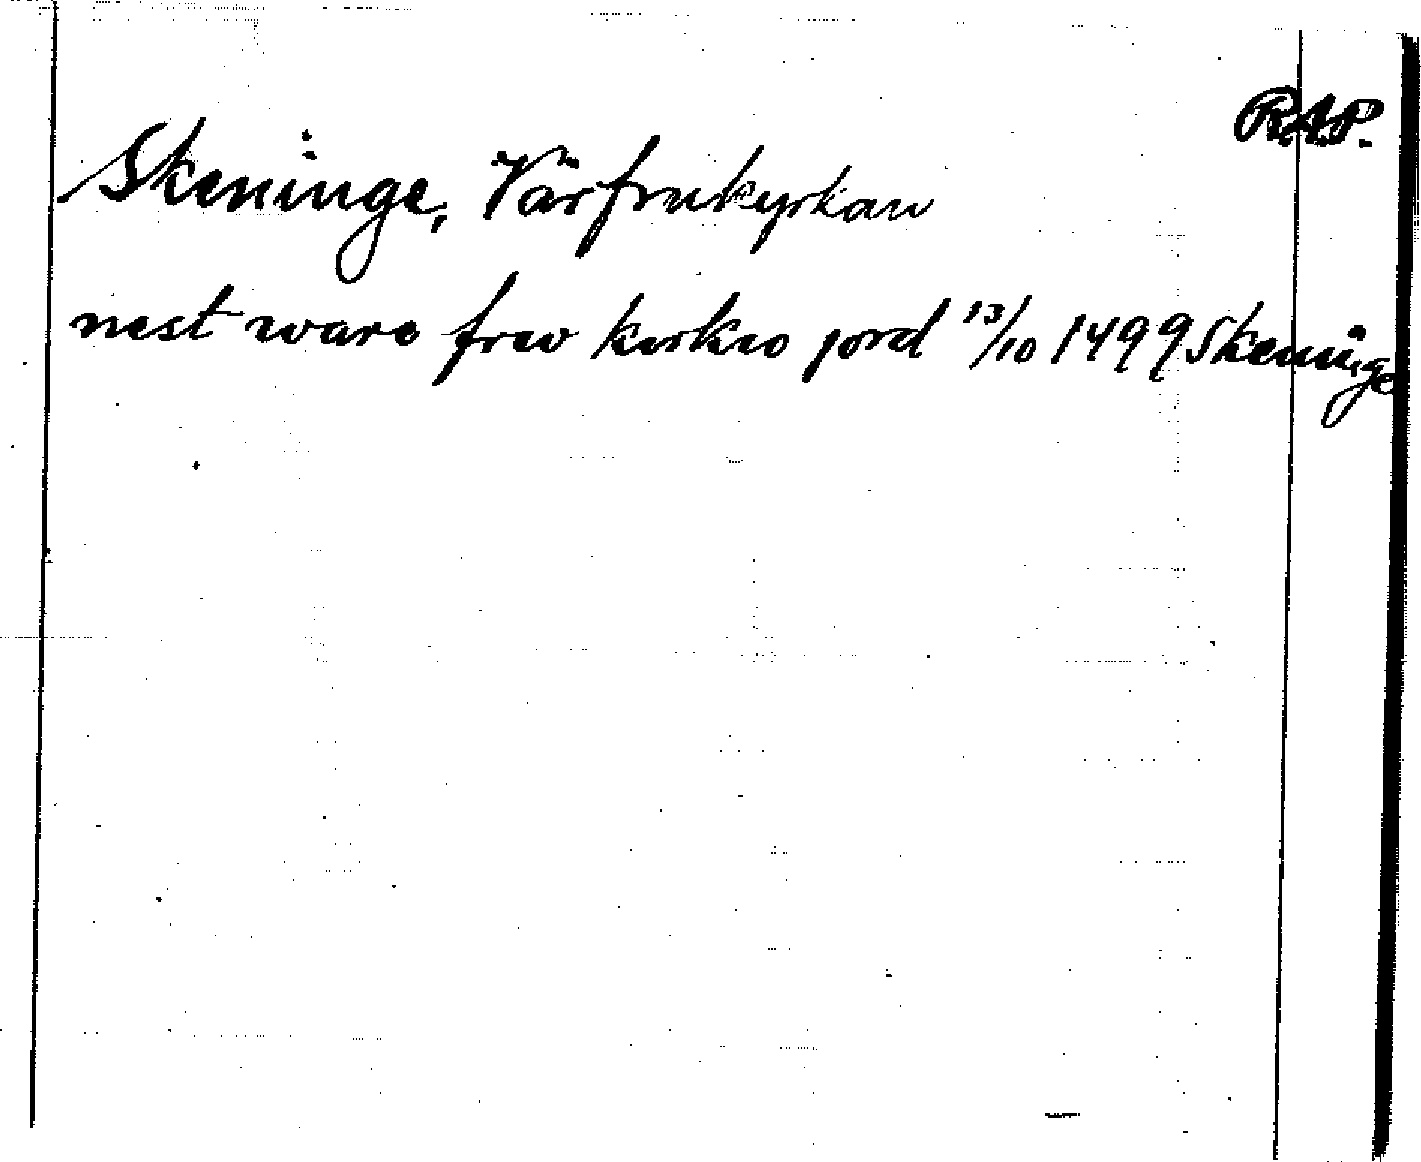 R.A.P.
Skeninge, Vårfrukyrkan
nest ware frw kirkio jord 13/10 1499 Skeninge